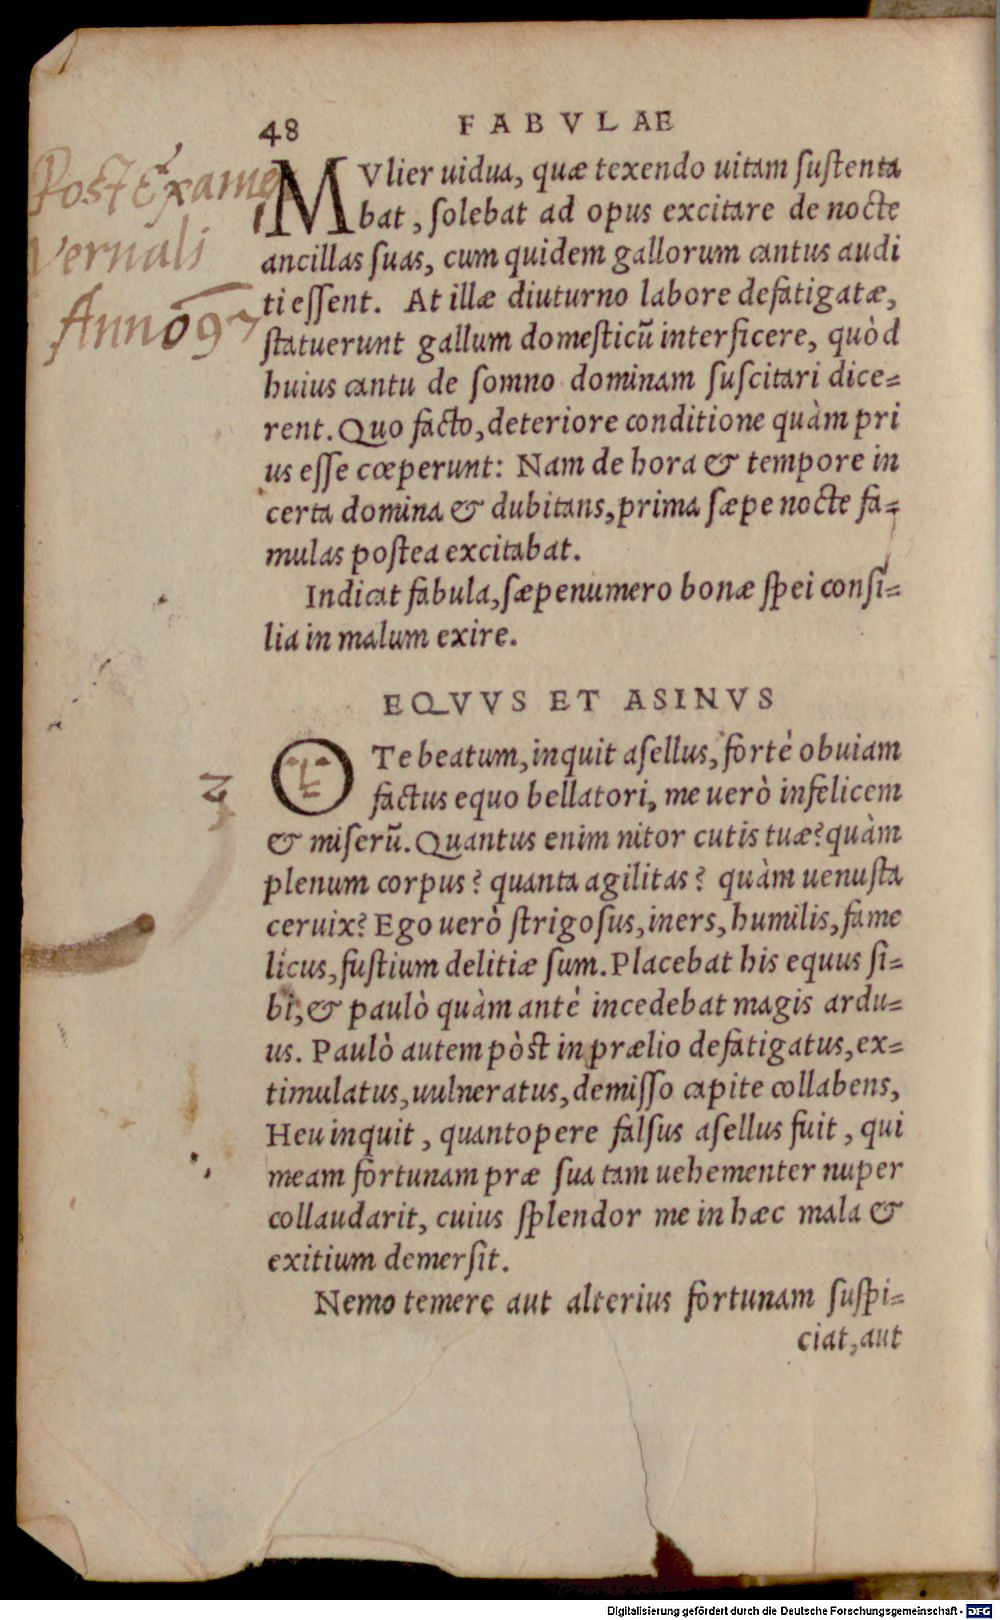 48 FABVLAE
Post Exame
Vernali
Anno 97
MVlier uidua, quæ texendo uitam ſuſtenta
bat, ſolebat ad opus excitare de nocte
ancillas ſuas, cum quidem gallorum cantus audi
ti eſſent. At illæ diuturno labore defatigatæ,
ſtatuerunt gallum domeſticũ interficere, quòd
huius cantu de ſomno dominam ſuſcitari dice=
rent. Quo facto, deteriore conditione quàm pri
us eſſe cœperunt: Nam de hora & tempore in
certa domina & dubitans, prima ſæpe nocte fa=
mulas poſtea excitabat.
Indicat fabula, ſæpenumero bonæ ſpei conſi=
lia in malum exire.
EQVVS ET ASINVS
O Te beatum, inquit aſellus, forté obuiam
factus equo bellatori, me uerò infelicem
& miſerũ. Quantus enim nitor cutis tuæ? quàm
plenum corpus? quanta agilitas? quàm uenuſta
ceruix? Ego uerò ſtrigoſus, iners, humilis, fame
licus, fuſtium delitiæ ſum. Placebat his equus ſi=
bi, & paulò quàm anté incedebat magis ardu=
us. Paulò autem pòst in prælio defatigatus, ex=
timulatus, uulneratus, demiſſo capite collabens,
Heu inquit, quantopere falſus aſellus fuit, qui
meam fortunam præ ſua tam uehementer nuper
collaudarit, cuius ſplendor me in hæc mala &
exitium demerſit.
Nemo temere aut alterius fortunam ſuſpi=
ciat, aut
Digitalisierung gefördert durch die Deutsche Forschungsgemeinschaft - DFG